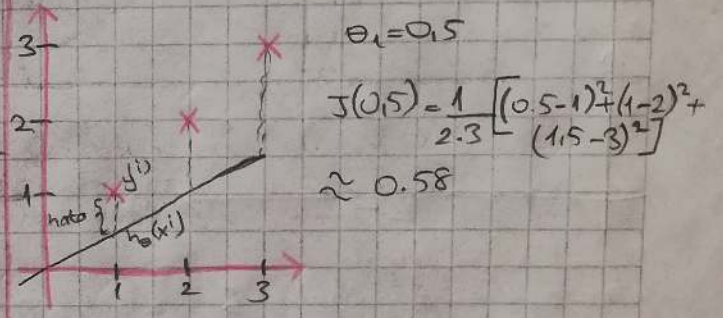 3
2
1
y⁽ⁱ⁾
hata {
h_θ(xⁱ)
1 2 3
θ₁=0,5
J(0,5) = 1/2.3 [(0.5-1)²+(1-2)²+
(1,5-3)²]
≈ 0.58